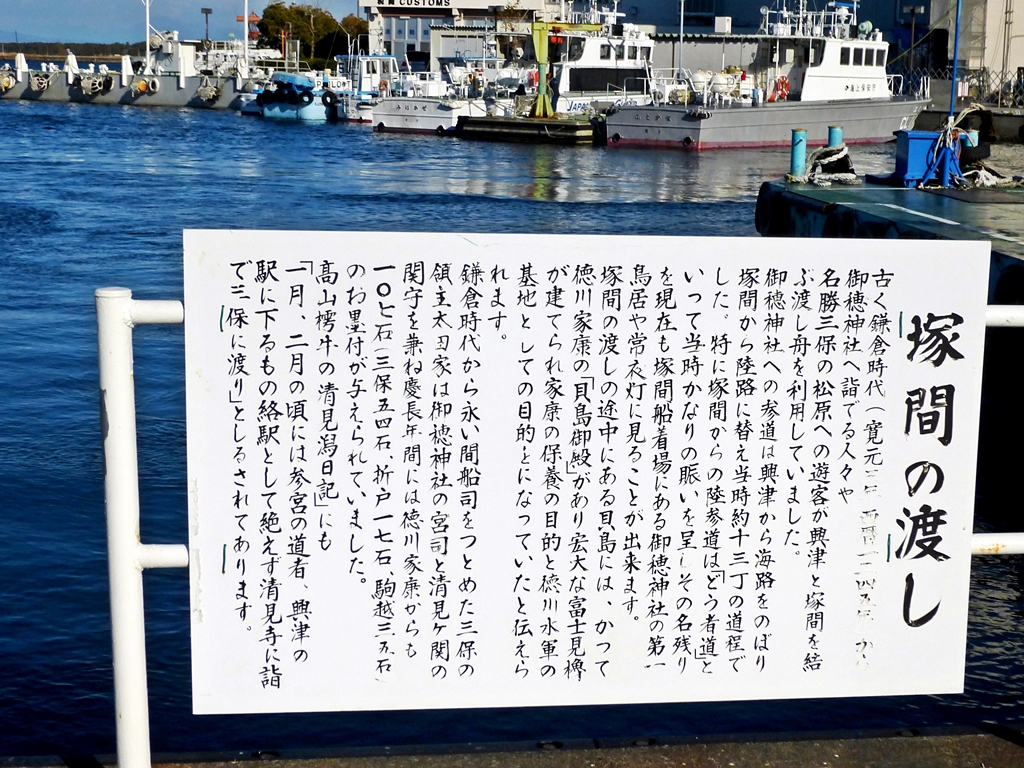 CUSTOMS
JAPAN
海上保安庁
塚間の渡し
古く鎌倉時代(寛元三年 西暦一二四五年)から
御穂神社へ詣でる人々や
名勝三保の松原への遊客が興津と塚間を結
ぶ渡し舟を利用していました。
御穂神社への参道は興津から海路をのぼり
塚間から陸路に替え当時約十三丁の道程で
した。特に塚間からの陸参道は「どう者道」と
いって当時かなりの賑いを呈しその名残り
を現在も塚間船着場にある御穂神社の第一
鳥居や常夜灯に見ることが出来ます。
塚間の渡しの途中にある貝島には、かつて
徳川家康の「貝島御殿」があり宏大な富士見櫓
が建てられ家康の保養の目的と徳川水軍の
基地としての目的をになっていたと伝えら
れます。
鎌倉時代から永い間船司をつとめた三保の
領主太田家は御穂神社の宮司と清見ヶ関の
関守を兼ね慶長年間には徳川家康からも
一〇七石(三保五四石、折戸一七石、駒越三五石)
のお墨付が与えられていました。
高山樗牛の清見潟日記」にも
「一月、二月の頃には参宮の道者、興津の
駅に下るもの絡駅として絶えず清見寺に詣
で三保に渡り」としるされてあります。